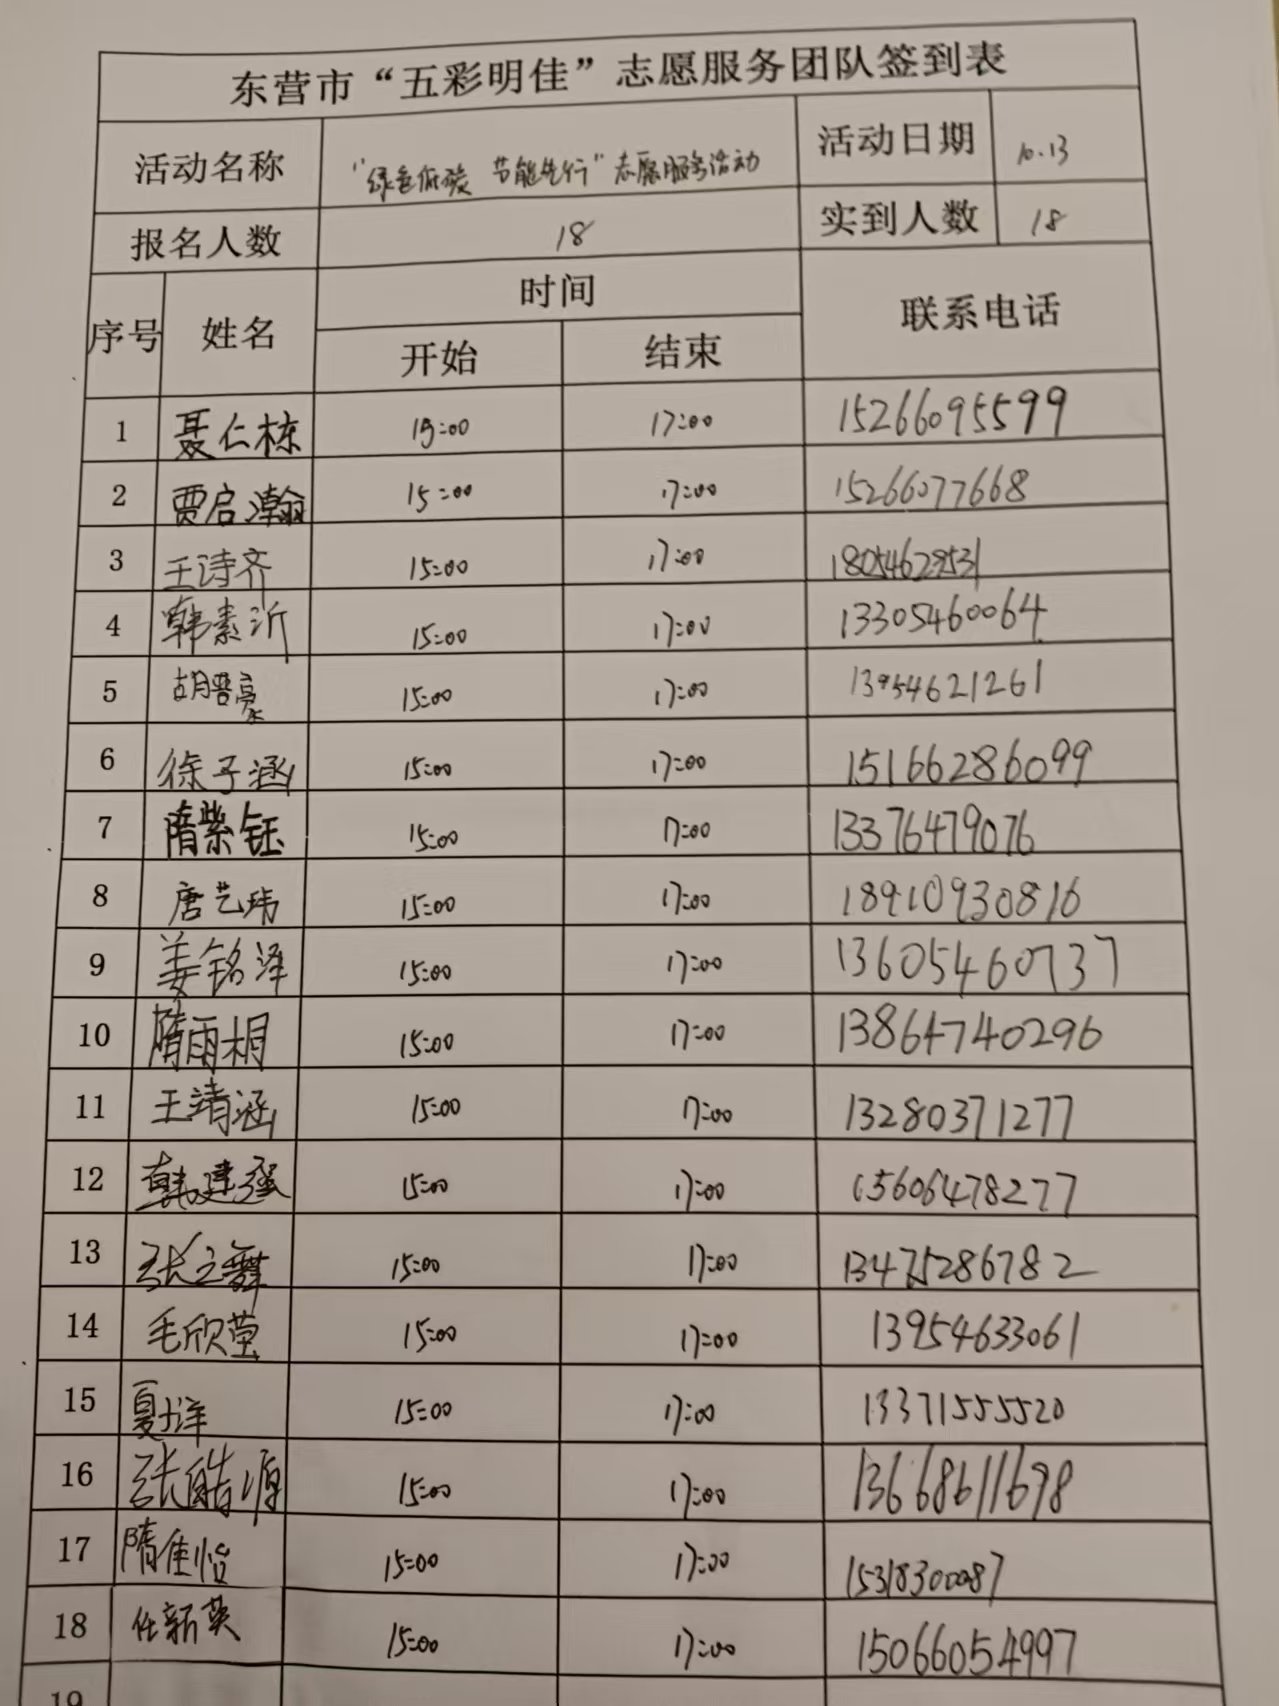 东营市“五彩明佳”志愿服务团队签到表
活动名称 “绿色低碳 节能先行”志愿服务活动 活动日期 10.13
报名人数 18 实到人数 18
序号 姓名 时间 联系电话
开始 结束
1 聂仁栋 15:00 17:00 15266095599
2 贾启瀚 15:00 17:00 15266077668
3 王诗齐 15:00 17:00
4 韩素沂 15:00 17:00 13305460064
5 胡晋豪 15:00 17:00 13954621261
6 徐子涵 15:00 17:00 15166286099
7 隋紫钰 15:00 17:00 13376479076
8 唐艺玮 15:00 17:00 18910930816
9 姜铭泽 15:00 17:00 13605460737
10 隋雨桐 15:00 17:00 13864740296
11 王靖涵 15:00 17:00 13280371277
12 韩建强 15:00 17:00 15606478277
13 张立舞 15:00 17:00 13475286782
14 毛欣莹 15:00 17:00 13954633061
15 15:00 17:00 13371555520
16 张皓源 15:00 17:00 13668611698
17 隋佳怡 15:00 17:00 15318300087
18 任新英 15:00 17:00 15066054997
19